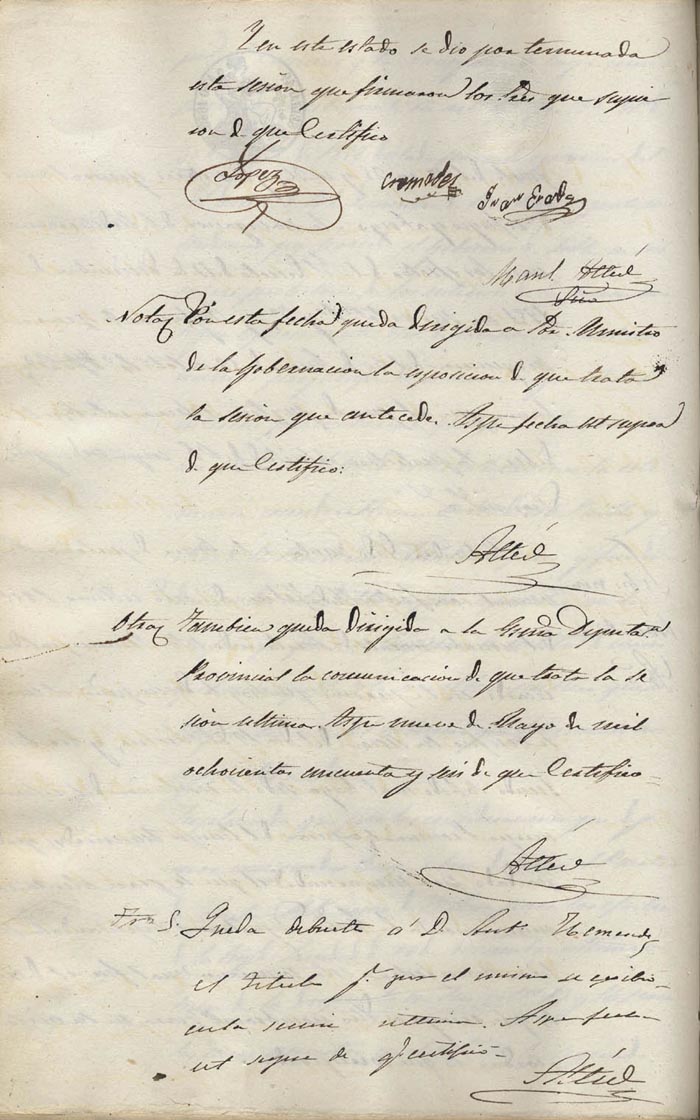 Y en este estado se dio por terminada
esta sesion que firmaron los Sres que supie
ron d que Certifico
Lopez
Cremades
Juan
Manl Alted
Nota Con esta fecha queda dirigida a Sor Ministro
de la Gobernacion la esposicion d que trata
la sesion que antecede. Aspe fecha ut supra
d que Certifico:
Alted
Otra Tambien queda dirigida a la Esma Diputan
Provincial la comunicacion de que trata la se
sion ultima. Aspe nueve de Mayo de mil
ochocientos cincuenta y seis de que Certifico
Alted
Queda debuelto á D. Anto Hernandez
el titulo pr. que el mismo se exibio
en la sesion ultima. Aspe fecha
ut supra de q. certifico
Alted